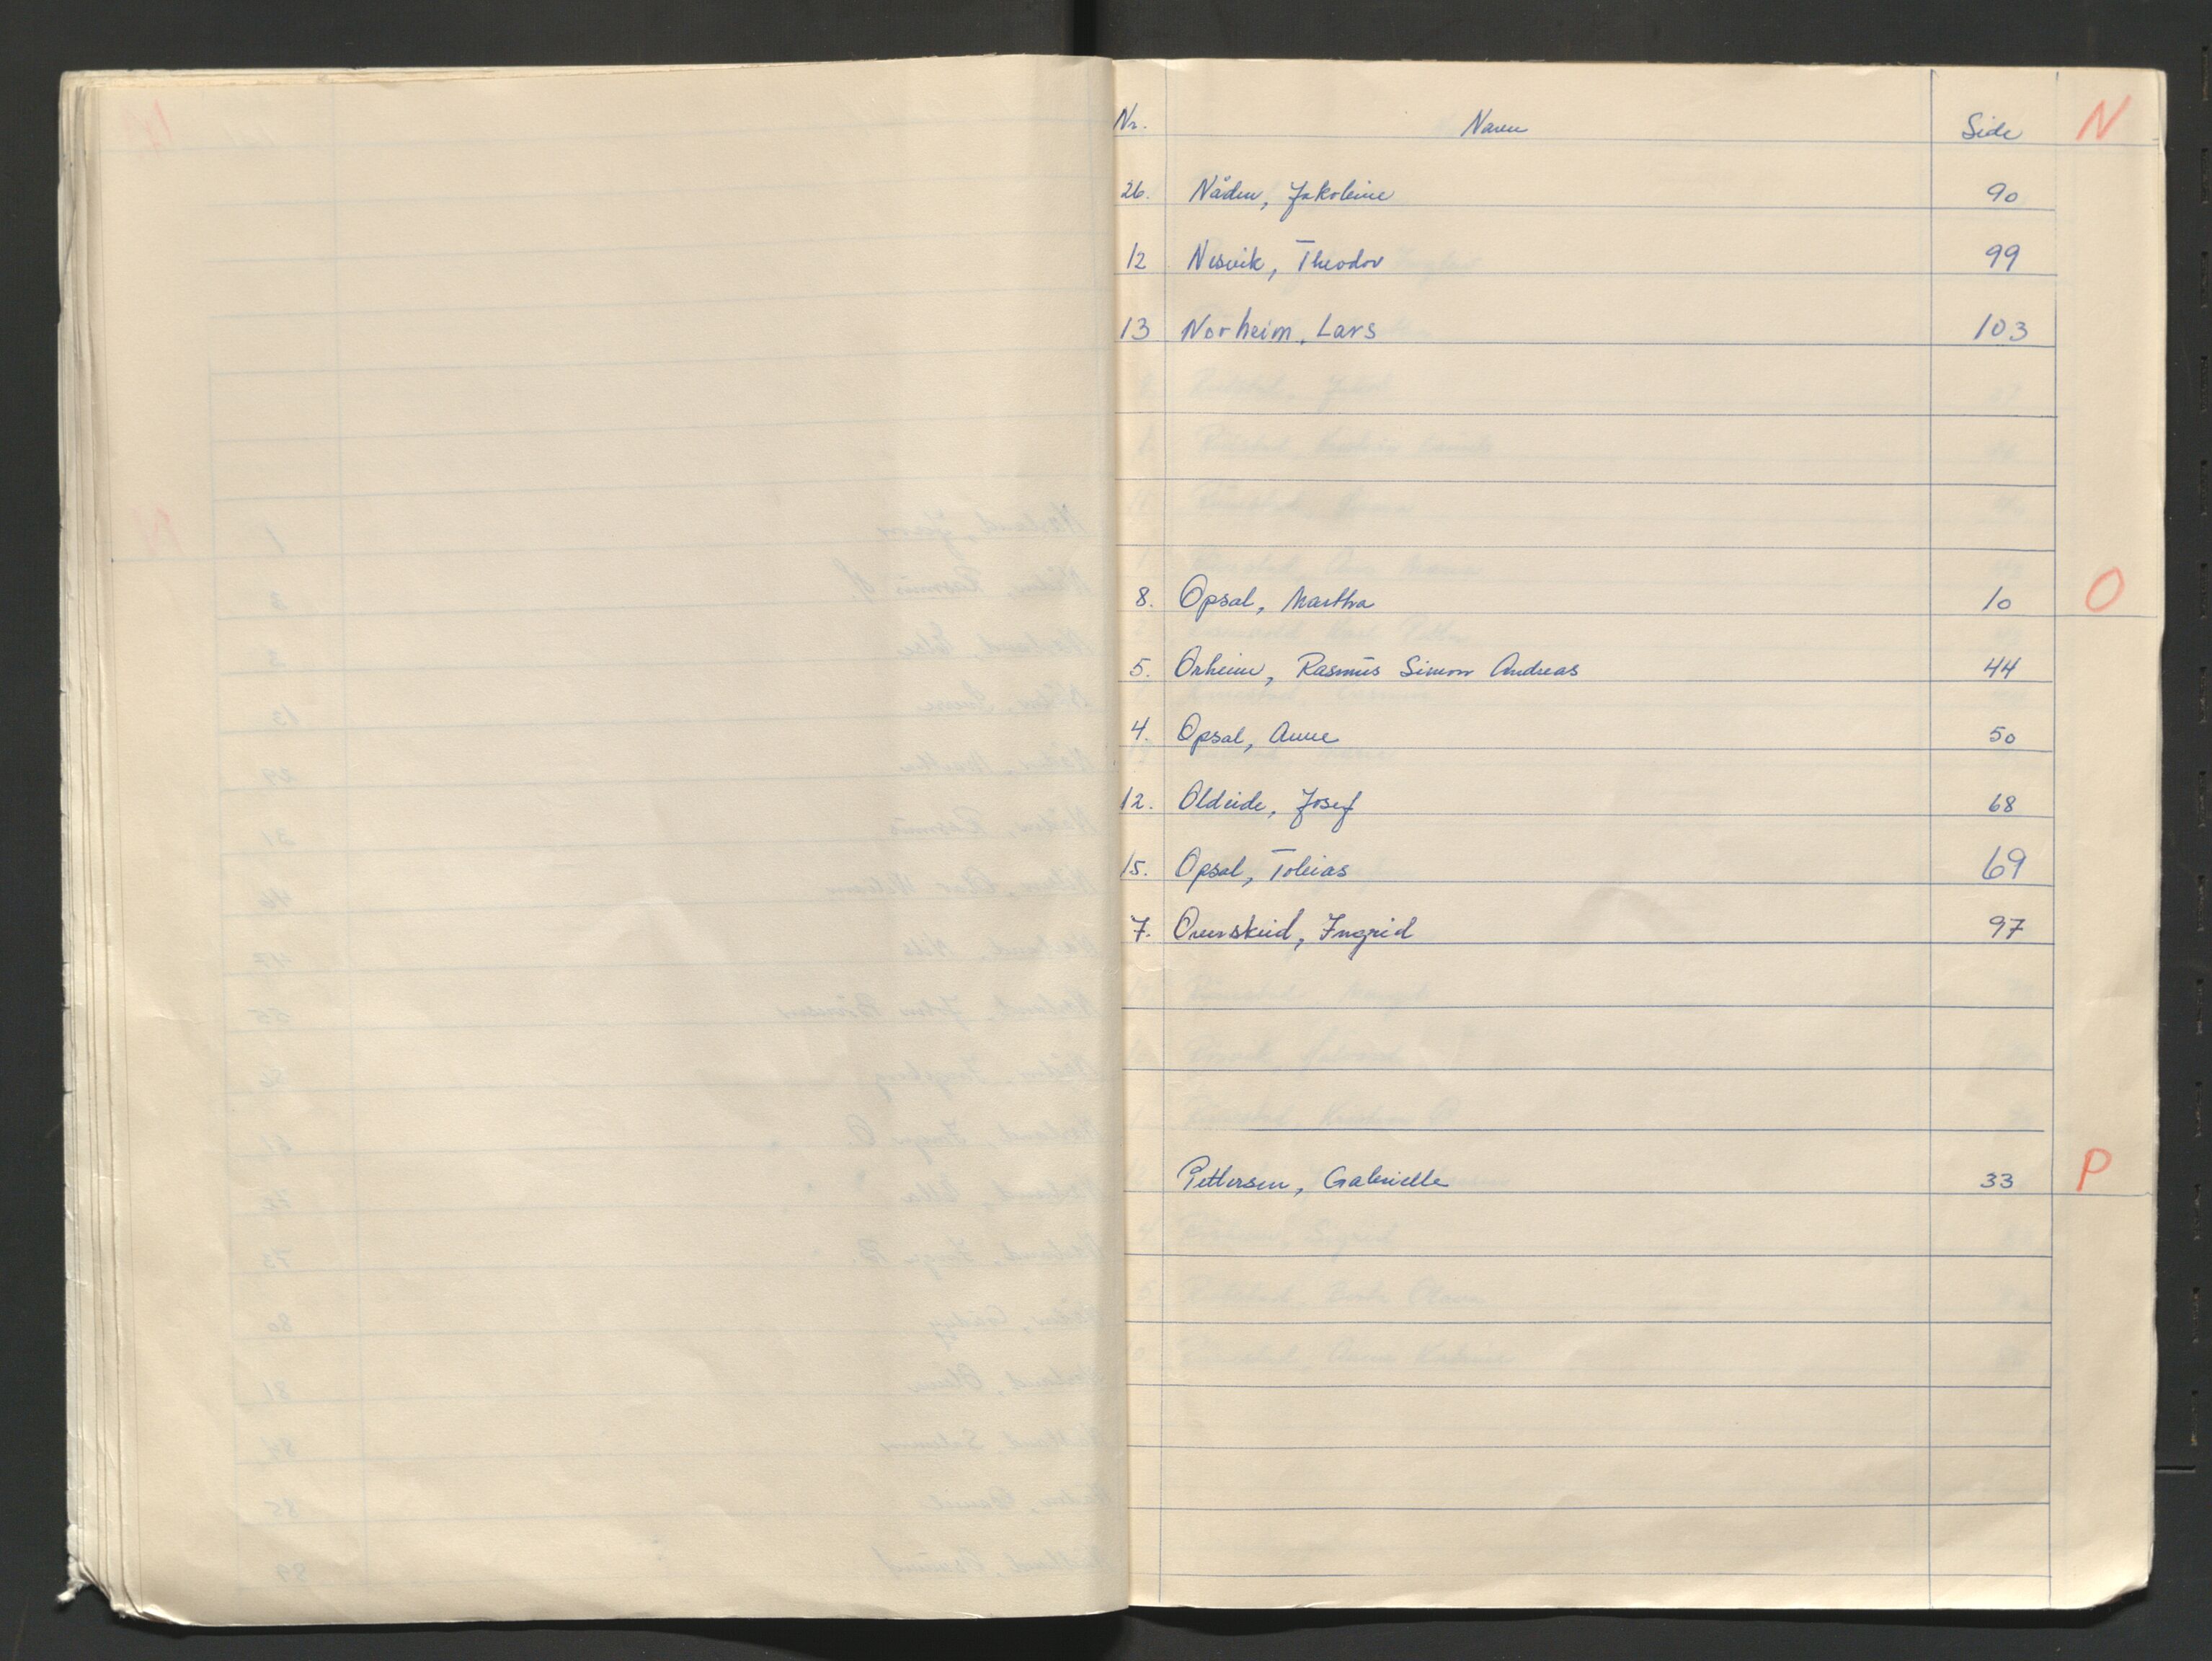 Nr. Navn Side N
26. Nåden, Jakobine 90
12 Nesvik, Theodor 99
13 Norheim, Lars 103
8. Opsal, Martha 10 O
5. Orheim, Rasmus Simon Andreas 44
4. Opsal, Anne 50
12. Oldeide, Josef 68
15. Opsal, Tobias 69
7. Overskeid, Ingrid 97
Pettersen, Gabrielle 33 P